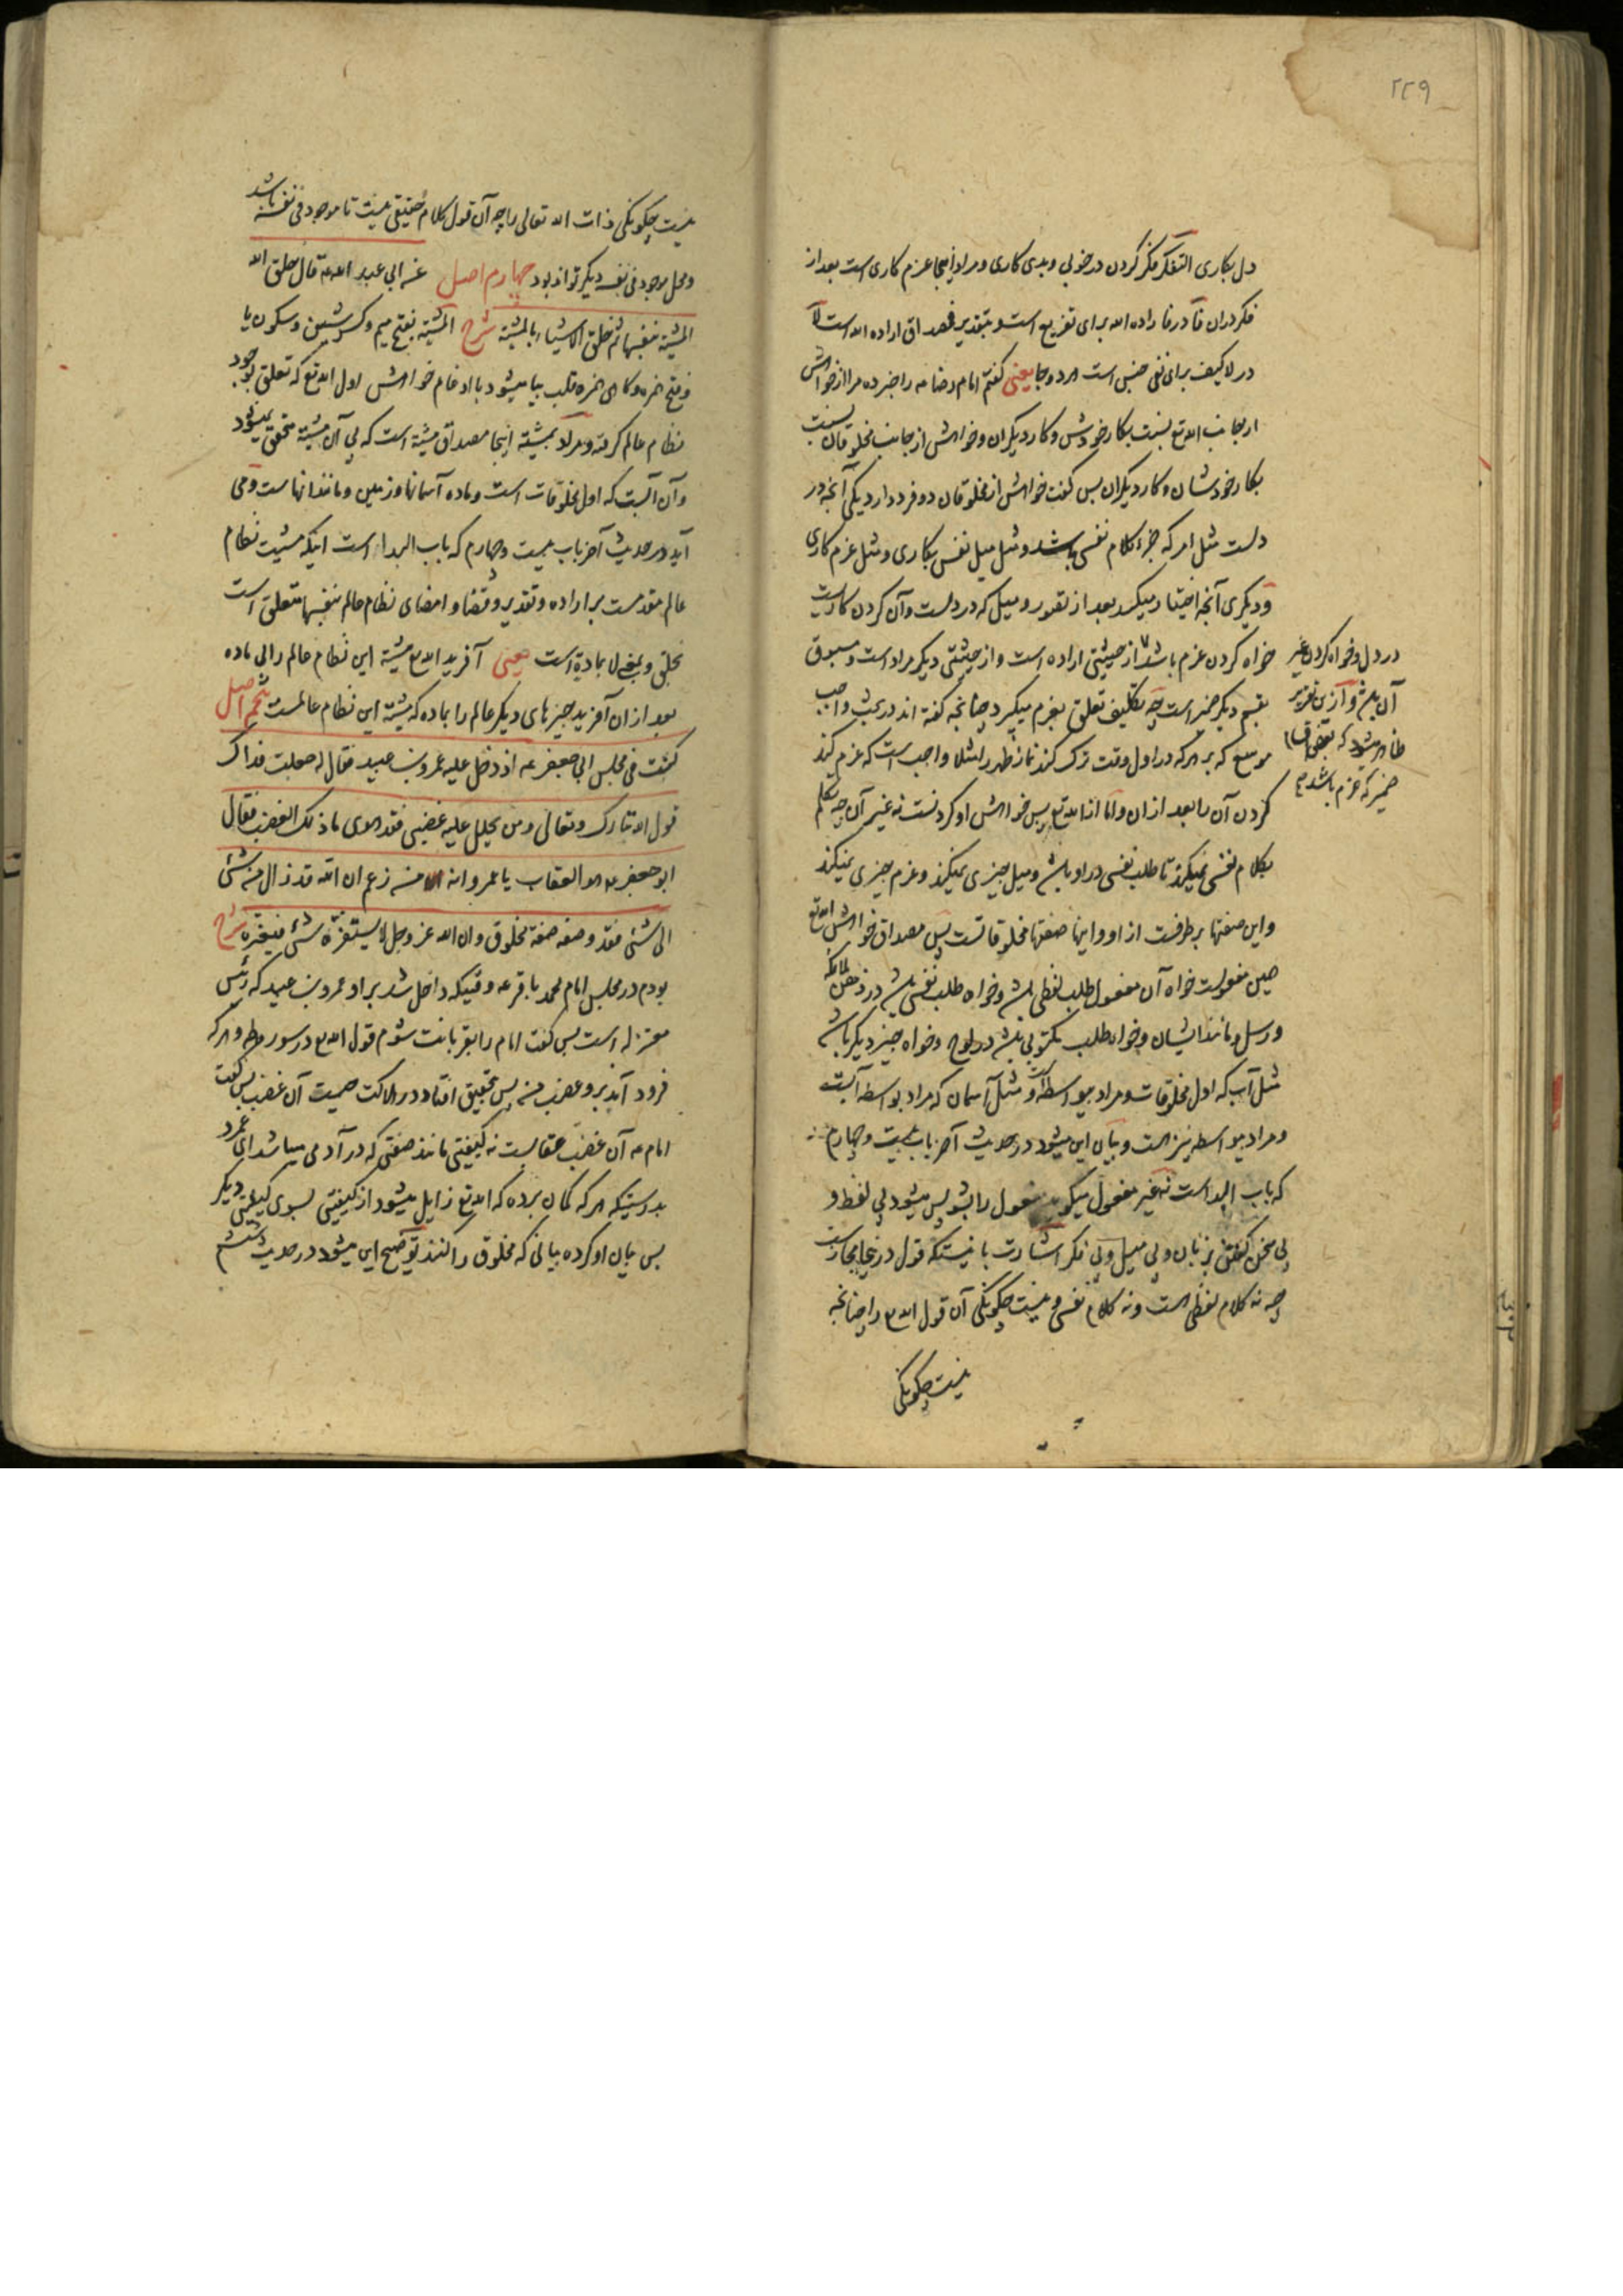 ٢٢٩
دل بکاری التفکر فکر کردن در خوبی و بدی کاری و مراد اینجا عزم کاری است بعد از
فکر در آن فا در فاراده الله برای تفریع است و بتقدیر فمصداق اراده الله است لا
در لا کیف برای نفی جنس است هر دو جا یعنی گفتم امام رضا ع را خبر ده مرا از خواهش
از جانب الله تع نسبت بکار خودش و کار دیگران و خواهش از جانب مخلوقان نسبت
بکار خودشان و کار دیگران پس گفت خواهش از مخلوقان دو فرد دارد یکی آنچه در
دلست مثل امر که جزء کلام نفسی باشد و مثل میل نفس بکاری و مثل عزم کاری
و دیگری آنچه اختیار میکند بعد از تصور و میل که در دلست و آن کردن کاریست
خواه کردن عزم باشد از حیثیتی اراده است و از حیثیتی دیگر مراد است و مسبوق
بقسم دیگر خبر است چه تکلیف تعلق بعزم میگیرد چنانچه گفته اند در بحث واجب
موسع که بر هر که در اول وقت ترک کند نماز ظهر را مثلا واجب است که عزم کند
کردن آن را بعد از ان و اما از الله تع پس خواهش او کردنست نه غیر آن چه تکلم
بکلام نفسی نمیکند تا طلب نفسی در او باشد و میل چیزی نمیکند و عزم چیزی نمیکند
و این صفتها بر طرفست از او و اینها صفتها مخلوقاتست پس مصداق خواهش الله تع
عین مفعولست خواه آن مفعول طلب لفظی باشد و خواه طلب نفسی باشد در ذهن ملائکه
و رسل و مانند ایشان و خواه طلب مکتوبی باشد در لوح و خواه چیز دیگر باشد
مثل آب که اول مخلوقات و مراد بیواسطه است و مثل آسمان که مراد بواسطه آبست
و مراد بیواسطه نیز هست و بیان این میشود در حدیث آخر باب بیست و چهارم
که باب البدا است نه غیر مفعول میگوید مفعول را بشو پس میشود بی لفظ و
بی سخن گفتن بزبان و بی میل و بی فکر اشارت باینستکه قول در اینجا مجازیست
چه نه کلام لفظی است و نه کلام نفسی و نیست چگونگی آن قول الله ع را چنانچه
نیست چگونگی
در دل و خواه کردن غیر
آن باشد و از این تقریر
ظاهر میشود که بعض افراد
خبر که عزم باشد
نیست چگونگی ذات الله تعالی را چه آن قول کلام حقیقی نیست تا موجود فی نفسه باشد
و محل موجود فی نفسه دیگر تواند بود چهارم اصل عن ابی عبد الله ع قال خلق الله
المشیة بنفسها ثم خلق الاشیاء بالمشیة شرح المشیة بفتح میم و کسر شین و سکون یا
و فتح همزه و گاهی همزه قلب بیا میشود با ادغام خواهش اول الله تع که تعلق بوجود
نظام عالم گرفته و مراد بمشیة اینجا مصداق مشیة است که بی آن مشیة متحقق نمیشود
و آن آبست که اول مخلوقات است و ماده آسمانها و زمین و مانند انهاست و می
آید در حدیث آخر باب بیست و چهارم که باب البداء است اینکه مشیت نظام
عالم مقدمست بر اراده و تقدیر و قضا و امضای نظام عالم بنفسها متعلق است
بخلق و بمنزله بمادة است یعنی آفرید الله ع مشیة این نظام عالم را بی ماده
بعد از ان آفرید چیزهای دیگر عالم را بماده که مشیة این نظام عالمست پنجم اصل
کنت فی مجلس ابی جعفر ع اذ دخل علیه عمرو بن عبید فقال له جعلت فداک
قول الله تبارک و تعالی و من یحلل علیه غضبی فقد هوی ما ذلک الغضب فقال
ابو جعفر ع هو العقاب یا عمرو انه من زعم ان الله قد زال من شئ
الی شئ فقد وصفه صفة مخلوق و ان الله عز وجل لا یستفزه شئ فیغیره شرح
بودم در مجلس امام محمد باقر ع وقتیکه داخل شد بر او عمرو بن عبید که رئیس
معتزله است پس گفت امام را بقربانت شوم قول الله ع در سوره طه و هر که
فرود آید بر و غضب من پس بتحقیق افتاد در هلاکت چیست آن غضب پس گفت
امام ع آن غضب عقابست نه کیفیتی مانند صفتی که در آدمی میباشد ای عمرو
بدرستیکه هر که گمان برده که الله تع زایل میشود از کیفیتی بسوی کیفیتی دیگر
پس بیان او کرده بیانی که مخلوق را کنند توضیح این میشود در حدیث ششم